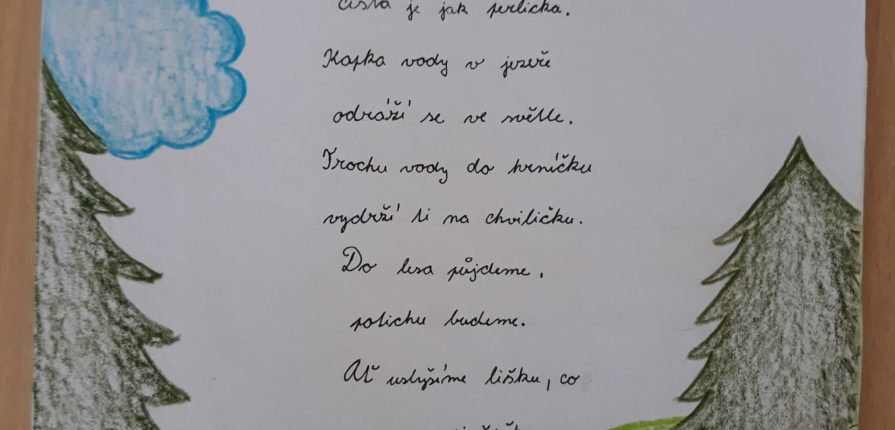 čistá je jak perlička.
Kapka vody v jezeře
odráží se ve světle.
Trochu vody do hrníčku
vydrží ti na chviličku.
Do lesa půjdeme,
potichu budeme.
Ať uslyšíme lišku, co